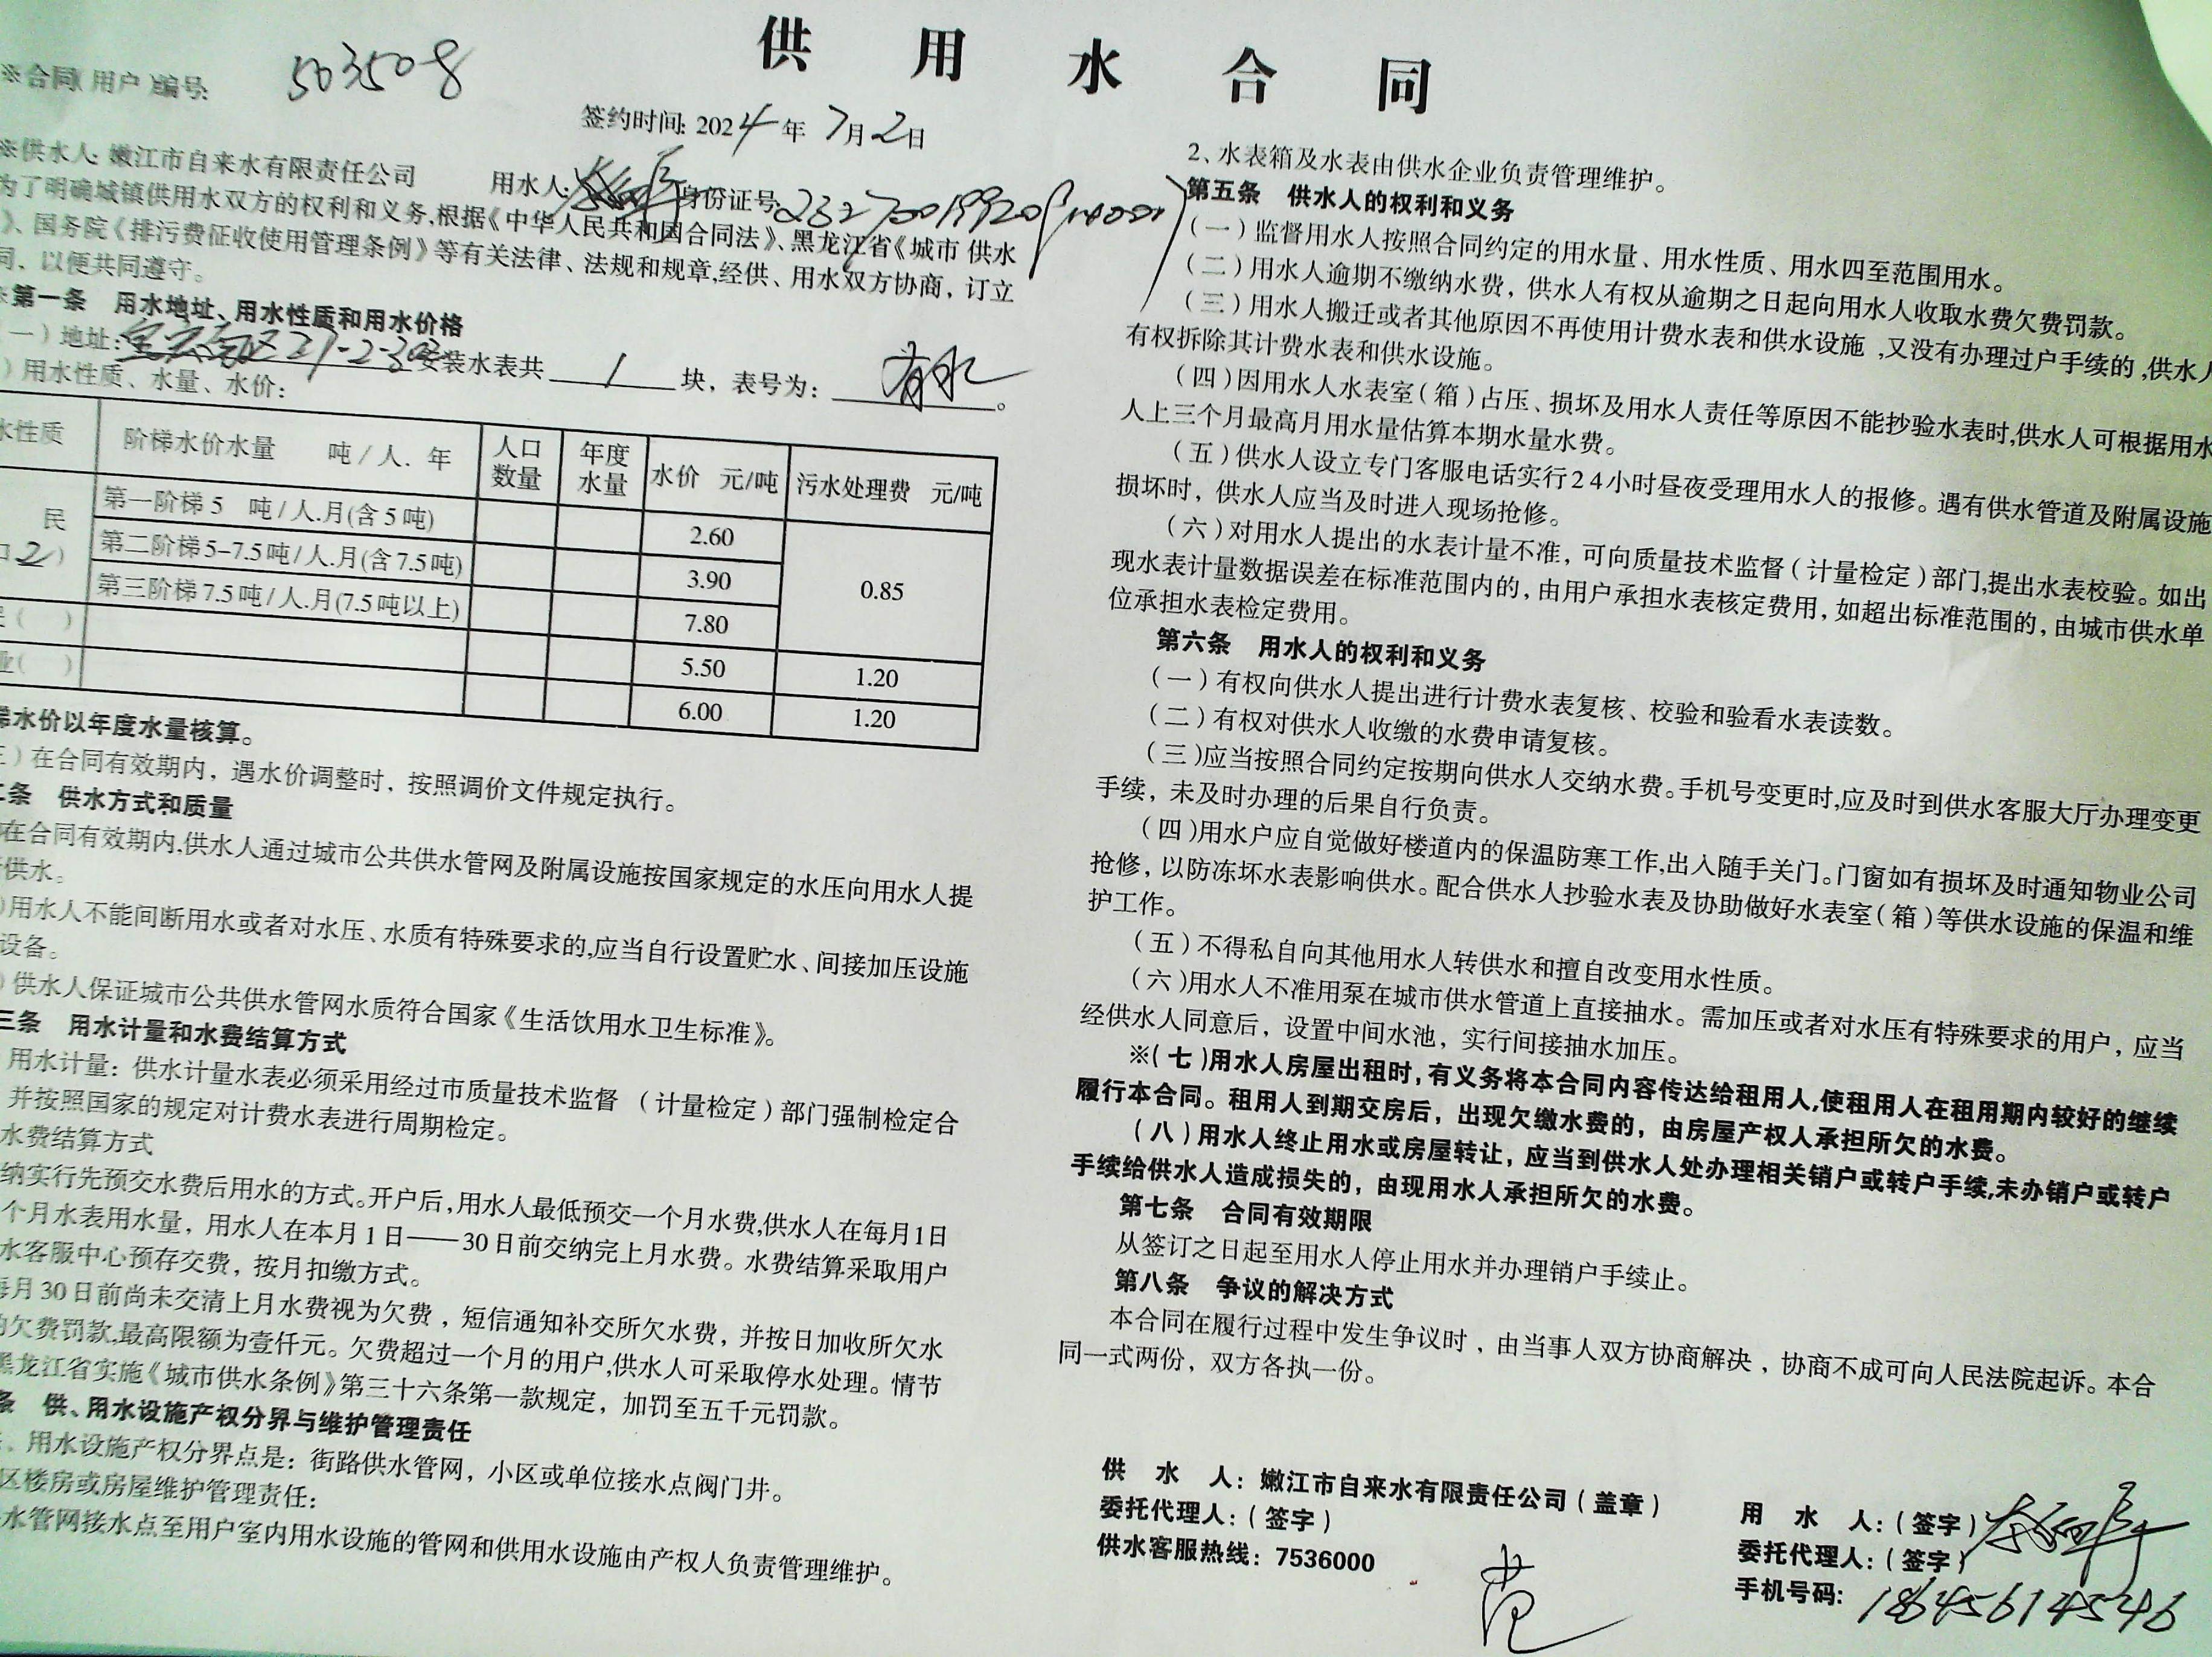 供用水合同
※合同(用户)编号: 503508
签约时间: 2024年7月2日
※供水人: 嫩江市自来水有限责任公司 用水人: 身份证号:
为了明确城镇供用水双方的权利和义务,根据《中华人民共和国合同法》、黑龙江省《城市 供水
》、国务院《排污费征收使用管理条例》等有关法律、法规和规章,经供、用水双方协商，订立
同，以便共同遵守。
※第一条 用水地址、用水性质和用水价格
一）地址: 27-2-302安装水表共 1 块，表号为:
）用水性质、水量、水价:
水性质 阶梯水价水量 吨/人.年 人口数量 年度水量 水价 元/吨 污水处理费 元/吨
民 第一阶梯5 吨/人.月(含5吨) 2.60 0.85
口2） 第二阶梯5-7.5吨/人.月(含7.5吨) 3.90
第三阶梯7.5吨/人.月(7.5吨以上) 7.80
( ) 5.50 1.20
业( ) 6.00 1.20
梯水价以年度水量核算。
三）在合同有效期内，遇水价调整时，按照调价文件规定执行。
二条 供水方式和质量
在合同有效期内,供水人通过城市公共供水管网及附属设施按国家规定的水压向用水人提
供水。
)用水人不能间断用水或者对水压、水质有特殊要求的,应当自行设置贮水、间接加压设施
设备。
）供水人保证城市公共供水管网水质符合国家《生活饮用水卫生标准》。
三条 用水计量和水费结算方式
用水计量：供水计量水表必须采用经过市质量技术监督 （计量检定）部门强制检定合
并按照国家的规定对计费水表进行周期检定。
水费结算方式
纳实行先预交水费后用水的方式。开户后,用水人最低预交一个月水费,供水人在每月1日
个月水表用水量，用水人在本月1日——30日前交纳完上月水费。水费结算采取用户
水客服中心预存交费，按月扣缴方式。
每月30日前尚未交清上月水费视为欠费，短信通知补交所欠水费，并按日加收所欠水
的欠费罚款,最高限额为壹仟元。欠费超过一个月的用户,供水人可采取停水处理。情节
黑龙江省实施《城市供水条例》第三十六条第一款规定，加罚至五千元罚款。
条 供、用水设施产权分界与维护管理责任
、用水设施产权分界点是：街路供水管网，小区或单位接水点阀门井。
区楼房或房屋维护管理责任:
水管网接水点至用户室内用水设施的管网和供用水设施由产权人负责管理维护。
2、水表箱及水表由供水企业负责管理维护。
第五条 供水人的权利和义务
（一）监督用水人按照合同约定的用水量、用水性质、用水四至范围用水。
（二）用水人逾期不缴纳水费，供水人有权从逾期之日起向用水人收取水费欠费罚款。
（三）用水人搬迁或者其他原因不再使用计费水表和供水设施,又没有办理过户手续的,供水人
有权拆除其计费水表和供水设施。
（四）因用水人水表室（箱）占压、损坏及用水人责任等原因不能抄验水表时,供水人可根据用水
人上三个月最高月用水量估算本期水量水费。
（五）供水人设立专门客服电话实行24小时昼夜受理用水人的报修。遇有供水管道及附属设施
损坏时，供水人应当及时进入现场抢修。
（六）对用水人提出的水表计量不准，可向质量技术监督（计量检定）部门,提出水表校验。如出
现水表计量数据误差在标准范围内的，由用户承担水表核定费用，如超出标准范围的，由城市供水单
位承担水表检定费用。
第六条 用水人的权利和义务
（一）有权向供水人提出进行计费水表复核、校验和验看水表读数。
（二）有权对供水人收缴的水费申请复核。
（三)应当按照合同约定按期向供水人交纳水费。手机号变更时,应及时到供水客服大厅办理变更
手续，未及时办理的后果自行负责。
（四)用水户应自觉做好楼道内的保温防寒工作,出入随手关门。门窗如有损坏及时通知物业公司
抢修，以防冻坏水表影响供水。配合供水人抄验水表及协助做好水表室（箱）等供水设施的保温和维
护工作。
（五）不得私自向其他用水人转供水和擅自改变用水性质。
（六)用水人不准用泵在城市供水管道上直接抽水。需加压或者对水压有特殊要求的用户，应当
经供水人同意后，设置中间水池，实行间接抽水加压。
※(七)用水人房屋出租时,有义务将本合同内容传达给租用人,使租用人在租用期内较好的继续
履行本合同。租用人到期交房后，出现欠缴水费的，由房屋产权人承担所欠的水费。
（八）用水人终止用水或房屋转让，应当到供水人处办理相关销户或转户手续,未办销户或转户
手续给供水人造成损失的，由现用水人承担所欠的水费。
第七条 合同有效期限
从签订之日起至用水人停止用水并办理销户手续止。
第八条 争议的解决方式
本合同在履行过程中发生争议时，由当事人双方协商解决，协商不成可向人民法院起诉。本合
同一式两份，双方各执一份。
供 水 人：嫩江市自来水有限责任公司（盖章）
委托代理人：（签字）
供水客服热线：7536000
范
用 水 人：（签字）
委托代理人：（签字）
手机号码: 18645614546